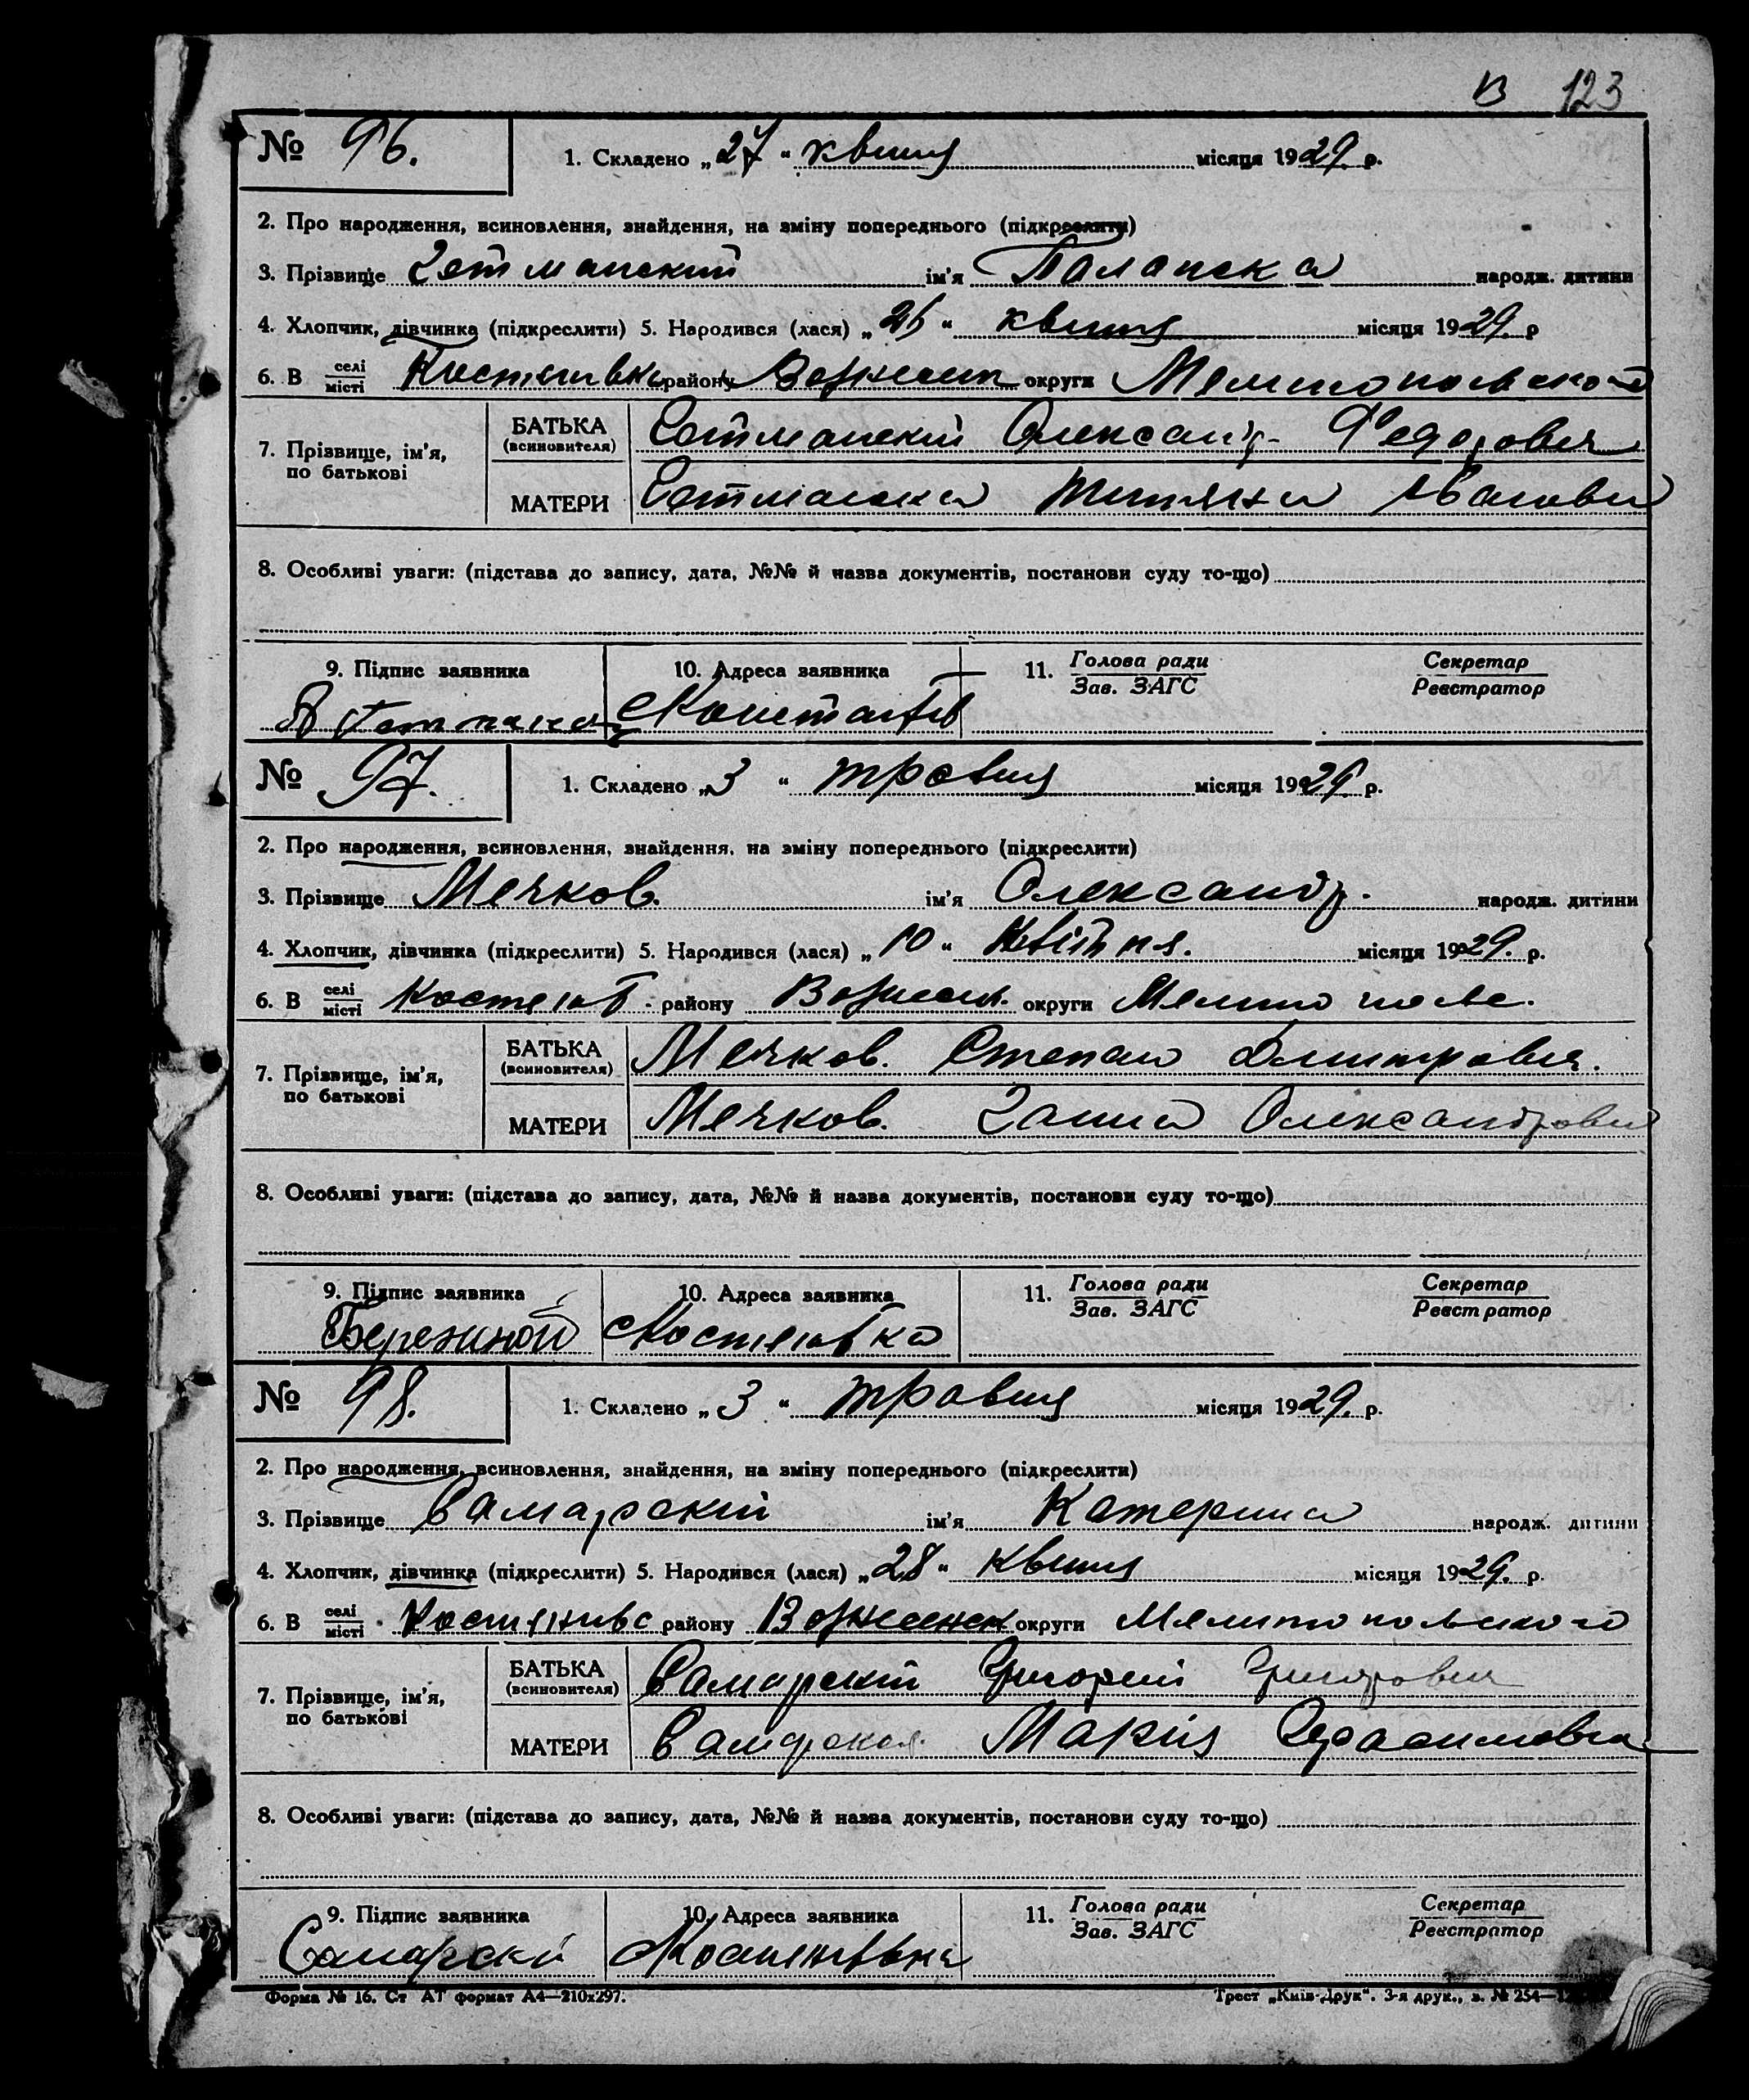 В 123
№ 96. 1. Складено „27“ квітня місяця 1929. р.
2. Про народження, всиновлення, знайдення, на зміну попереднього (підкреслити)
3. Прізвище Гетманский ім'я народж. дитини
4. Хлопчик, дівчинка (підкреслити) 5. Народився (лася) „26“ квітня місяця 1929. р
6. В селі/місті району округи Мелитопольского
7. Прізвище, ім'я, по батькові БАТЬКА (всиновителя) Гетманский Олександр Федорович
МАТЕРИ Гетманска Татяна Ивановна
8. Особливі уваги: (підстава до запису, дата, №№ й назва документів, постанови суду то-що)
9. Підпис заявника 10. Адреса заявника 11. Голова ради/Зав. ЗАГС Секретар/Реєстратор
№ 97. 1. Складено „3“ травня місяця 1929. р.
2. Про народження, всиновлення, знайдення, на зміну попереднього (підкреслити)
3. Прізвище Мечков. ім'я Олександр. народж. дитини
4. Хлопчик, дівчинка (підкреслити) 5. Народився (лася) „10“ Квітня. місяця 1929. р.
6. В селі/місті району округи
7. Прізвище, ім'я, по батькові БАТЬКА (всиновителя) Мечков. Степан Дмитрович.
МАТЕРИ Мечков. Ганна Олександровна
8. Особливі уваги: (підстава до запису, дата, №№ й назва документів, постанови суду то-що)
9. Підпис заявника 10. Адреса заявника 11. Голова ради/Зав. ЗАГС Секретар/Реєстратор
№ 98. 1. Складено „3“ травня місяця 1929. р.
2. Про народження, всиновлення, знайдення, на зміну попереднього (підкреслити)
3. Прізвище Самарский ім'я Катерина народж. дитини
4. Хлопчик, дівчинка (підкреслити) 5. Народився (лася) „28“ квітня місяця 1929. р.
6. В селі/місті району округи Мелитопольского
7. Прізвище, ім'я, по батькові БАТЬКА (всиновителя) Самарский Григорий Григорович
МАТЕРИ Самарская Мария Герасимовна
8. Особливі уваги: (підстава до запису, дата, №№ й назва документів, постанови суду то-що)
9. Підпис заявника 10. Адреса заявника 11. Голова ради/Зав. ЗАГС Секретар/Реєстратор
Форма № 16. Ст АТ формат А4—210х297. Трест „Київ-Друк“. 3-я друк., з. № 254—